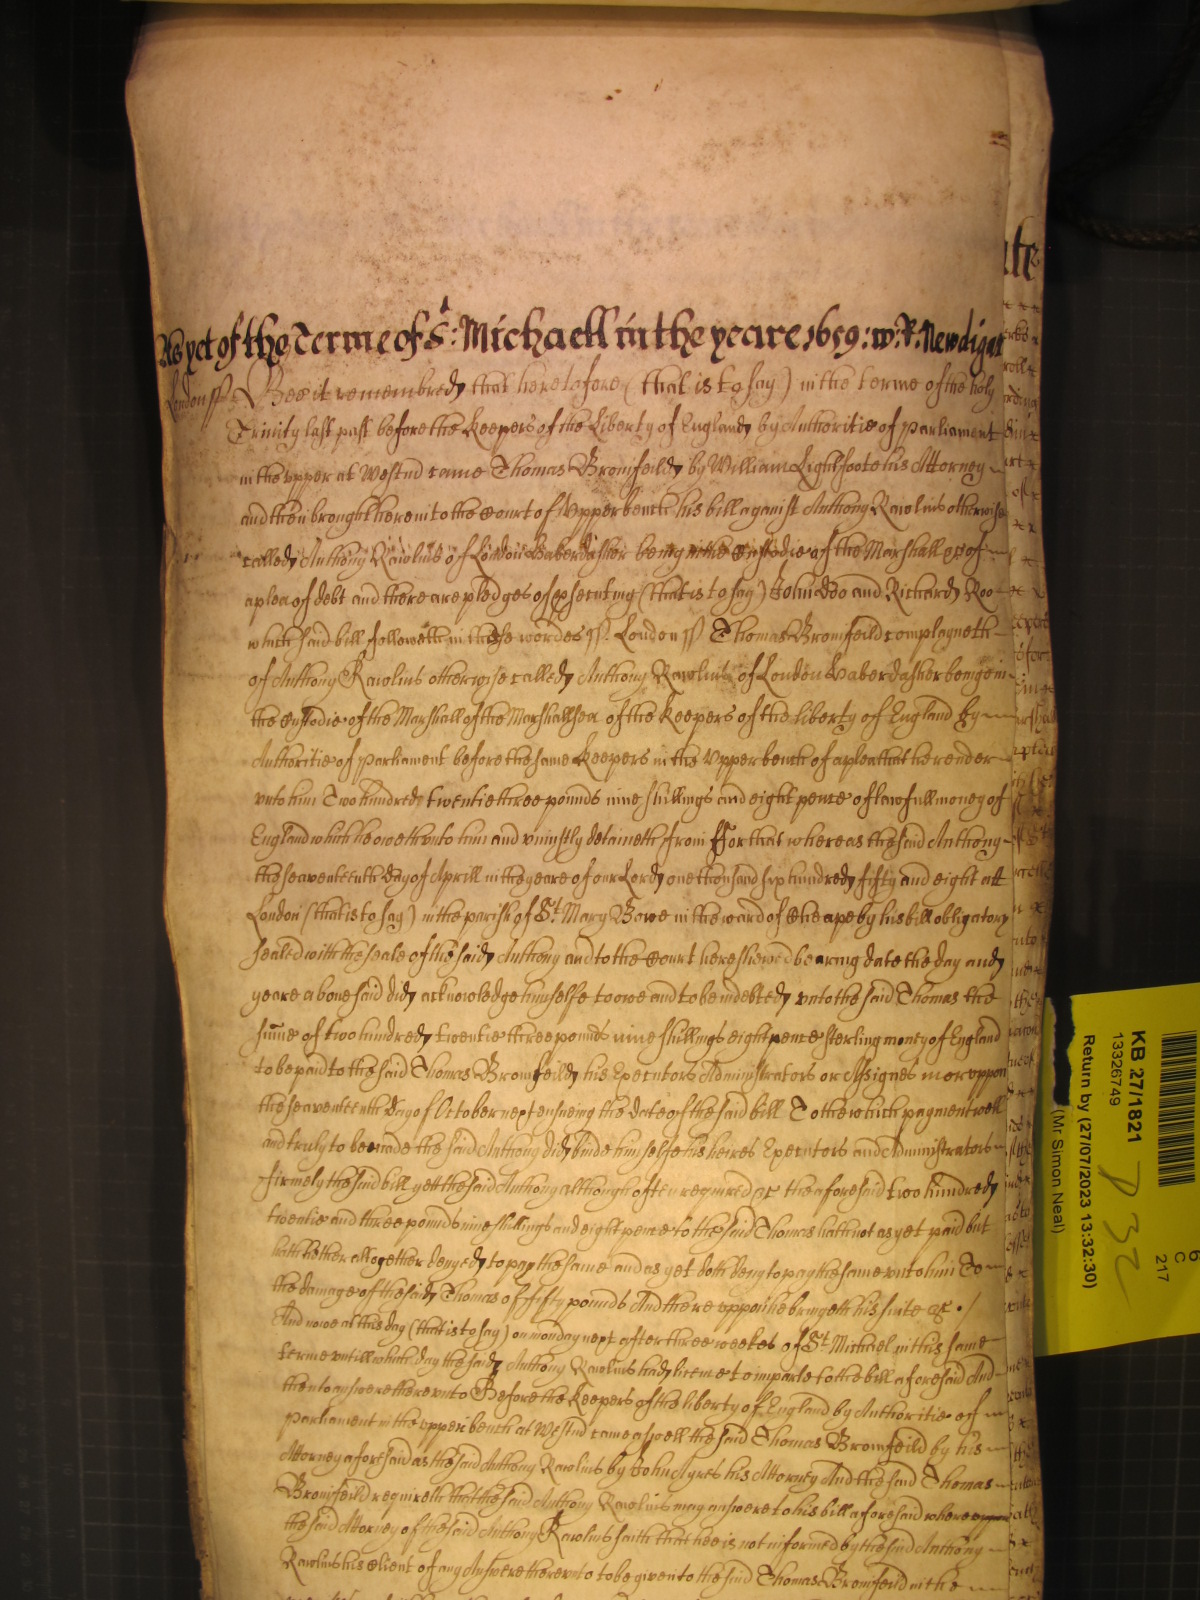 As yet of the Terme of St: Michaell in the yeare 1659: w: R: Newdigat
London ss Bee it remembred that heretofore (that is to say) in the terme of the holy
Trinity last past before the keepers of the Liberty of England by Authoritie of parliament
in the upper at Westmd came Thomas Bromfeild by William Lightfoote his Attorney
and then brought here into the Court of Upper bench his bill against Anthony Rawlins otherwise
called Anthony Rawlins of London Haberdasher being in the Custodie of the Marshall &c of
a plea of debt and there are pledges of prosecuting (that is to say) John Doo and Richard Roo
which said bill followeth in these wordes ss. London ss Thomas Bromfeild complayneth
of Anthony Rawlins otherwise called Anthony Rawlins of London Haberdasher beinge in
the Custodie of the Marshall of the Marshallsea of the keepers of the liberty of England by
Authoritie of parliament before the same keepers in the Upper bench of a plea that he render
unto him Two hundred twentie three pounds nine shillings and eight pence of lawfull money of
England which he oweth unto him and uniustly detaineth from For that whereas the said Anthony
the seaventeenth day of Aprill in the yeare of our Lord one thousand six hundred fifty and eight att
London (that is to say) in the parish of St Mary Bowe in the ward of Cheape by his bill obligatory
sealed with the seale of the said Anthony and to the Court here shewed bearing date the day and
yeare abovesaid did acknowledge himselfe to owe and to be indebted unto the said Thomas the
sume of two hundred twentie three pounds nine shillings eight pence sterling money of England
to be paid to the said Thomas Bromfeild his Executors Administrators or Assignes in or uppon
the seaventeenth day of October next ensueing the date of the said bill To the which payment well
and truly to bee made the said Anthony did binde himselfe his heires Executors and Administrators
firmely the said bill yett the said Anthony although often required &c the aforesaid two hundred
twentie and three pounds nine shillings and eight pence to the said Thomas hath not as yet paid but
hath hither altogether denyed to pay the same and as yet doth deny to pay the same unto him To
the damage of the said Thomas of fifty pounds And thereuppon he bringeth his suite &c. /
And nowe at this day (that is to say) on monday next after three weekes of St Michael in this same
terme untill which day the said Anthony Rawlins had licence to imparle to the bill aforesaid And
then to answere thereunto Before the keepers of the liberty of England by Authoritie of
parliament in the upper bench at Westmd came aswell the said Thomas Bromfeild by his
Attorney aforesaid as the said Anthony Rawlins by John Ayres his Attorney And the said Thomas
Bromfeild requireth that the said Anthony Rawlins may answere to his bill aforesaid whereuppon
the said Attorney of the said Anthony Rawlins saith that hee is not informed by the said Anthony
Rawlins his Client of any Answere thereunto to be given to the said Thomas Bromfeild in the
KB 27/1821
13326749
Return by (27/07/2023 13:32:30)
(Mr Simon Neal)
6
C
217
P 32